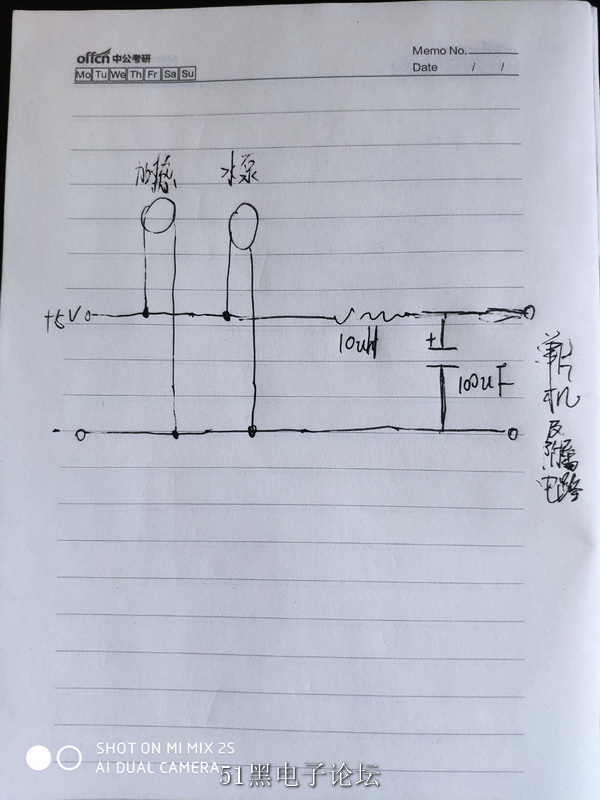 offcn 中公考研
Mo Tu We Th Fr Sa Su
Memo No.
Date / /
加热 水泵
+5V
10uH
+
100uF
单片机
及
附属
电路
-
SHOT ON MI MIX 2S
AI DUAL CAMERA
51黑电子论坛